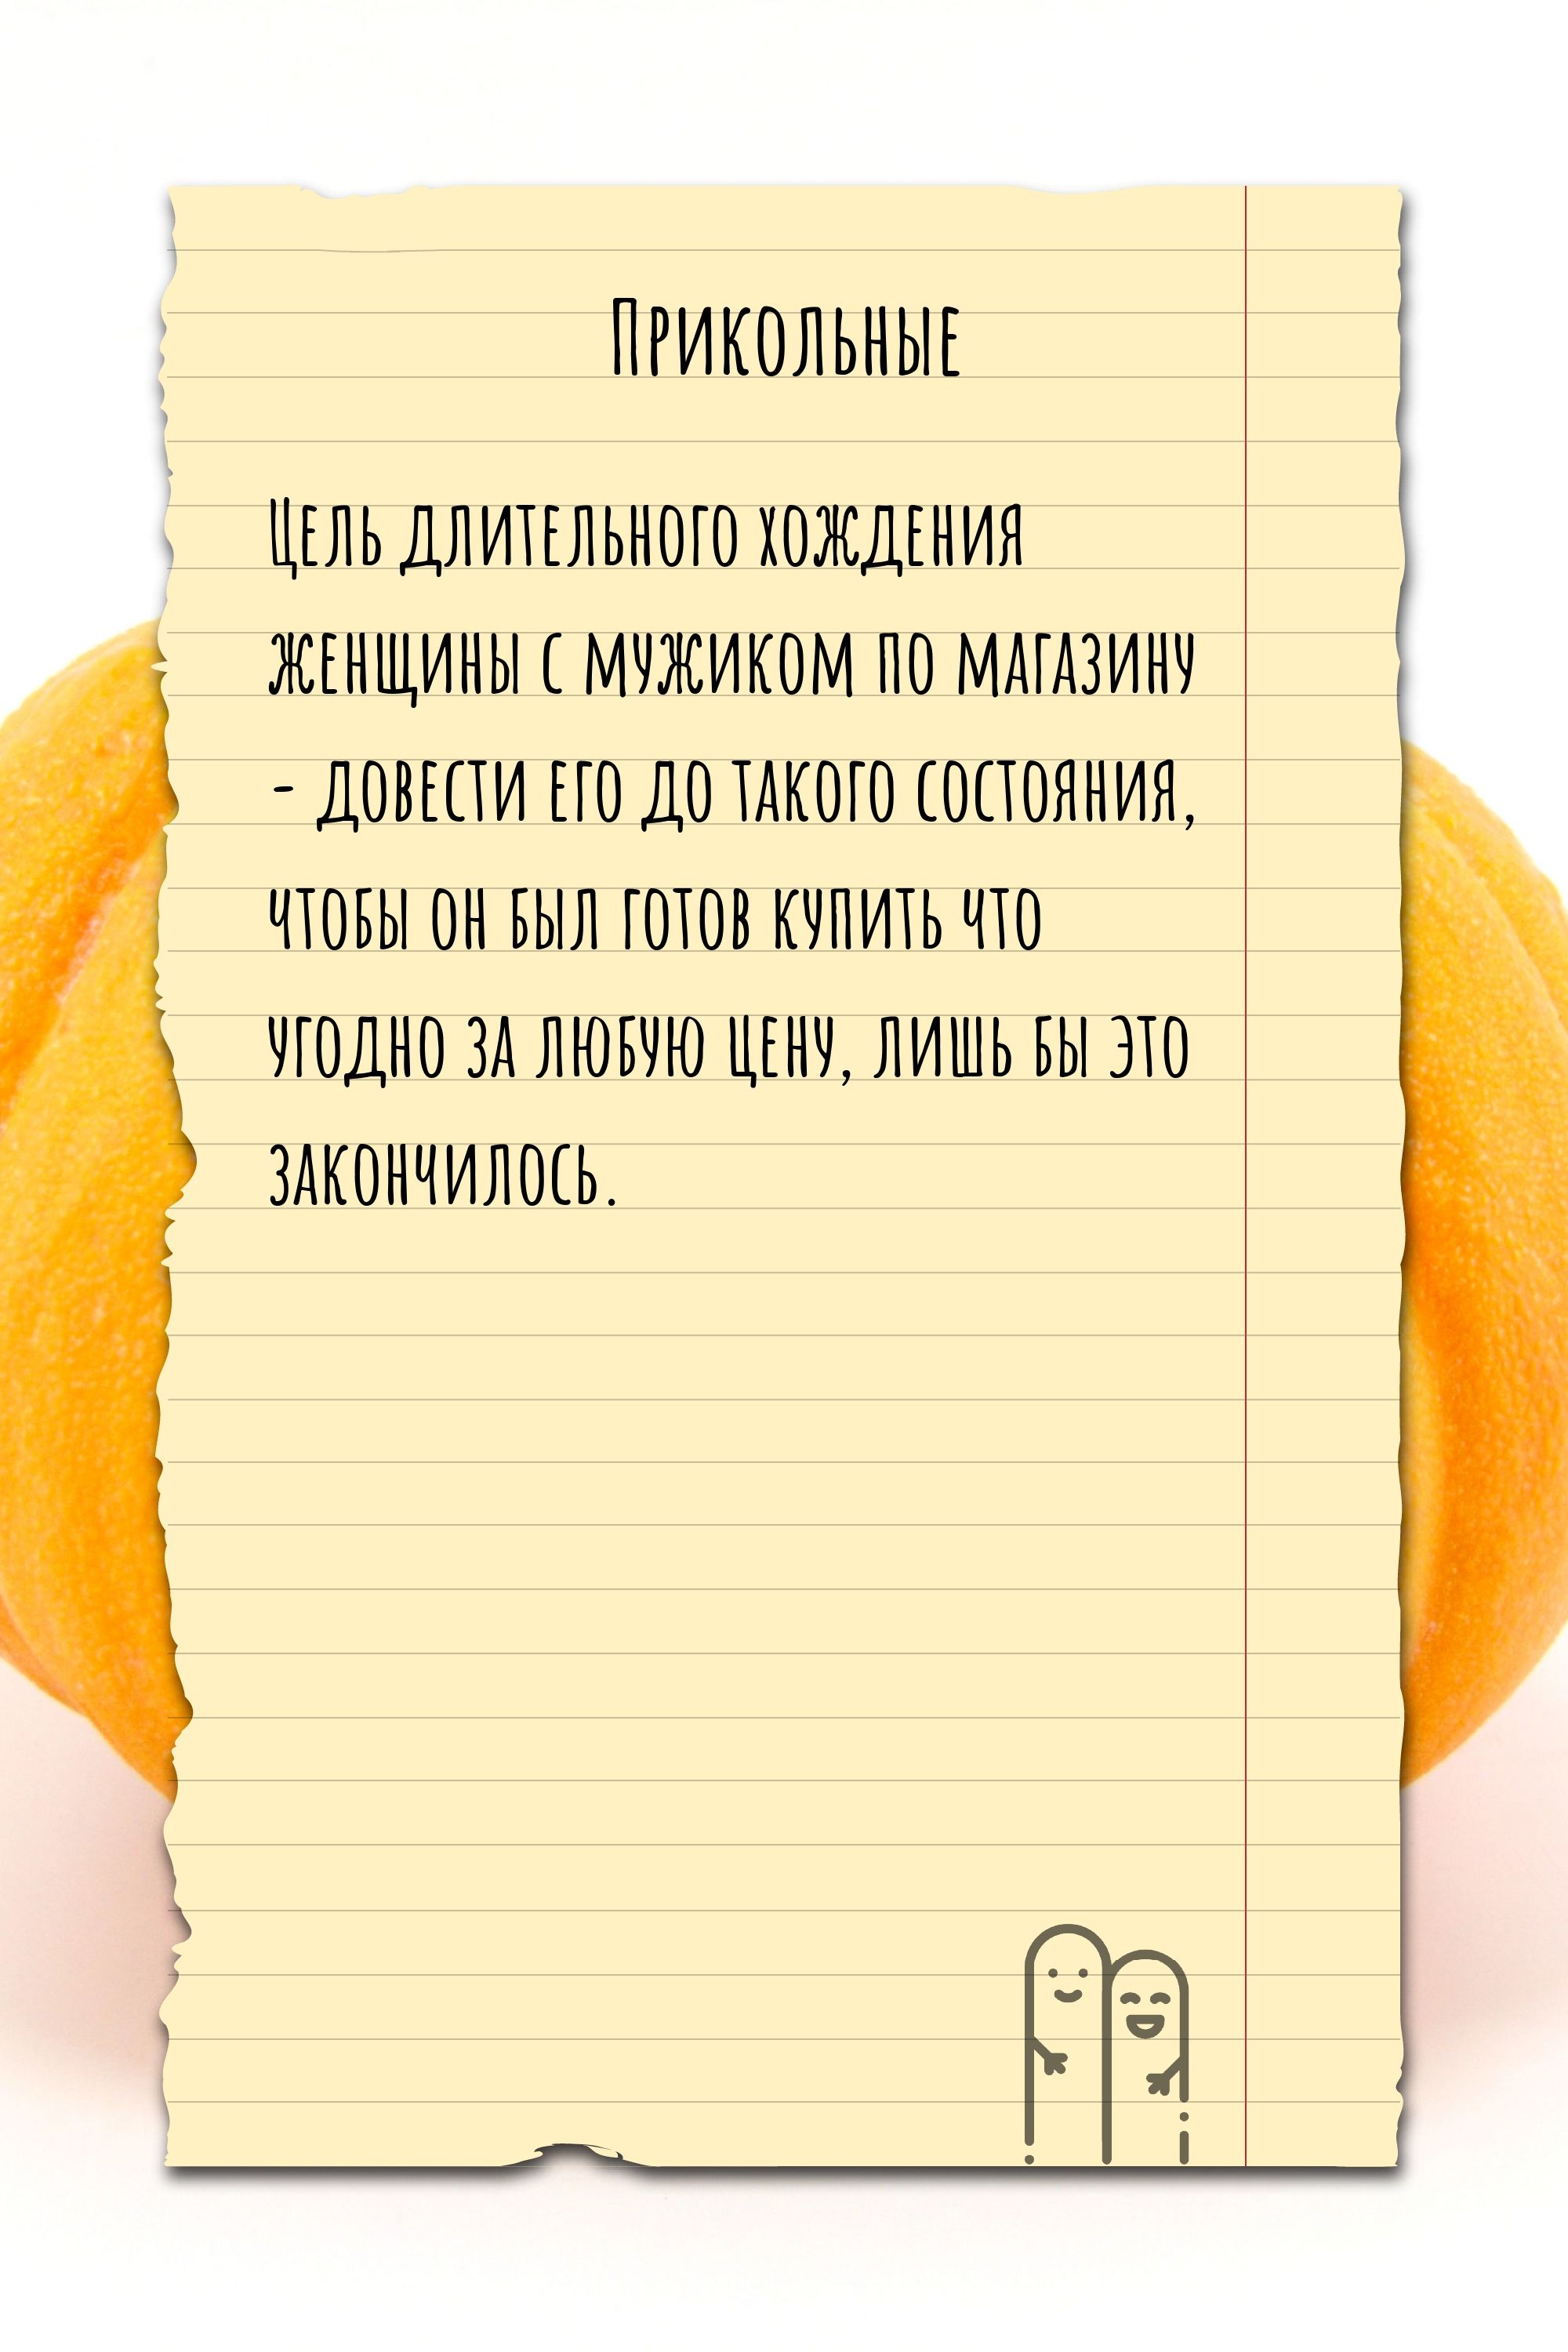 Прикольные
Цель длительного хождения
женщины с мужиком по магазину
- довести его до такого состояния,
чтобы он был готов купить что
угодно за любую цену, лишь бы это
закончилось.